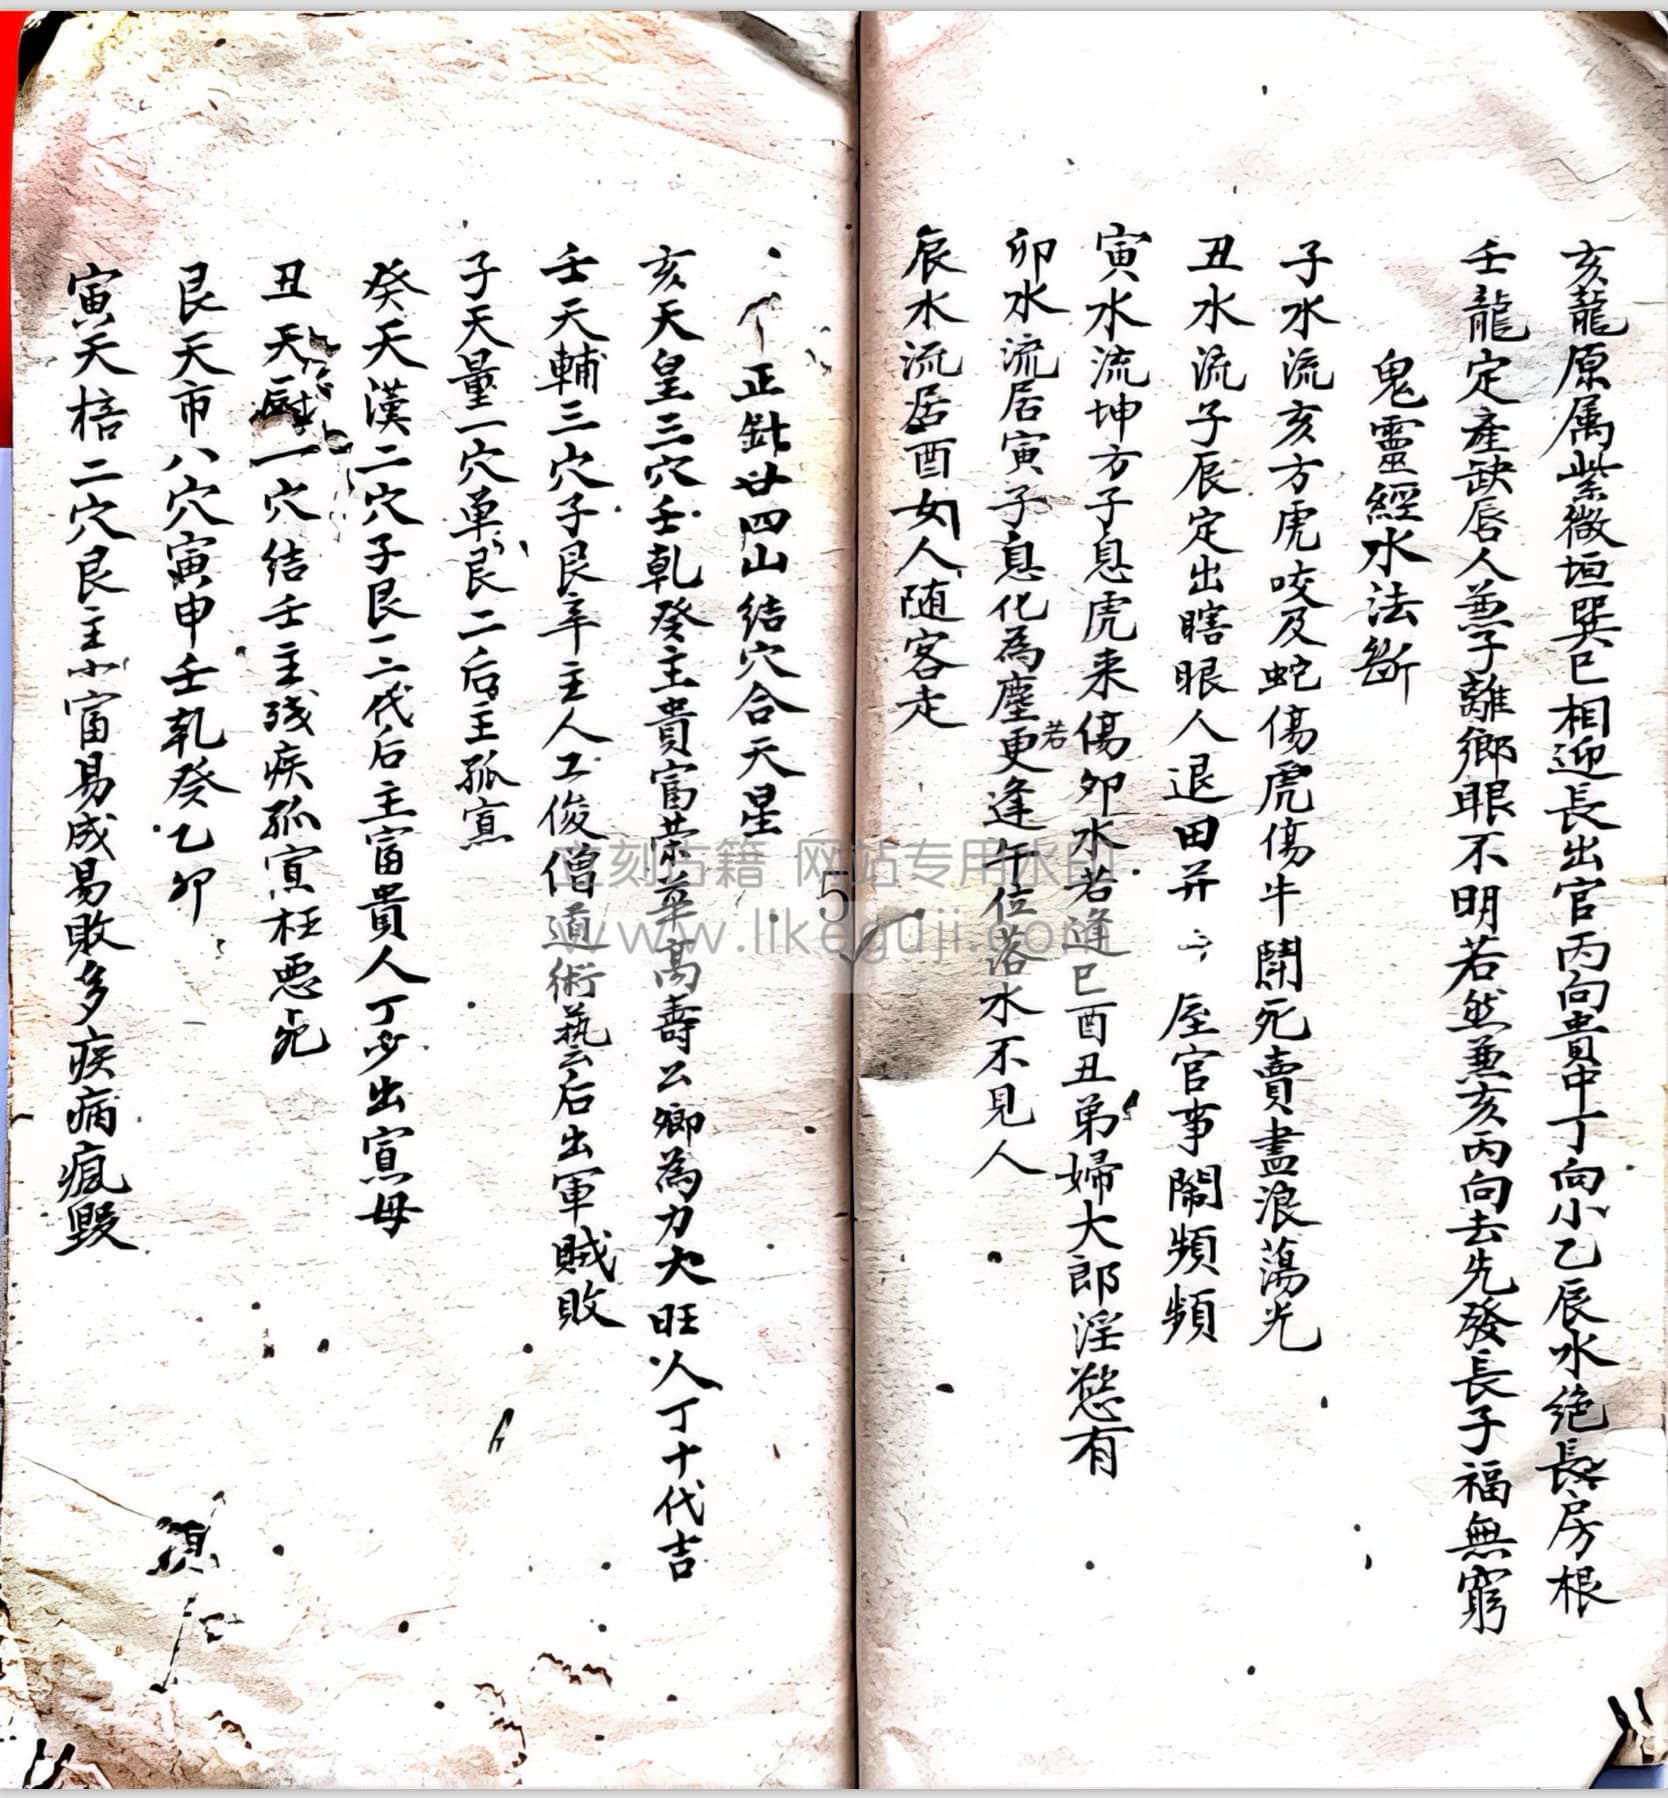 亥龍原属紫微垣巽巳相迎長出官丙向貴中丁向小乙辰水绝長房根
壬龍定產缺唇人兼子離鄉眼不明若然兼亥丙向去先發長子福無窮
鬼靈經水法斷
子水流亥方虎咬及蛇傷虎傷牛鬪死賣盡浪蕩光
丑水流子辰定出瞎眼人退田并屋官事鬧頻頻
寅水流坤方子息虎来傷卯水若逢巳酉丑弟婦大郎淫慾有
卯水流居寅子息化為塵更若逢午位落水不見人
辰水流居酉女人随客走
正針廿四山结穴合天星
亥天皇三穴壬乾癸主貴富荣華高壽公卿為力大旺人丁十代吉
壬天輔三穴子艮辛主人工俊僧道術藝后出軍賊敗
子天量一穴单艮二后主孤寡
癸天漢二穴子艮一二代后主富貴人丁少出寡母
丑天厨一穴结壬主残疾孤寡枉恶死
艮天市八穴寅申壬乾癸乙卯
寅天棓二穴艮主小富易成易敗多疾病瘋毀
立刻古籍 网站专用水印
www.likeguji.com
5